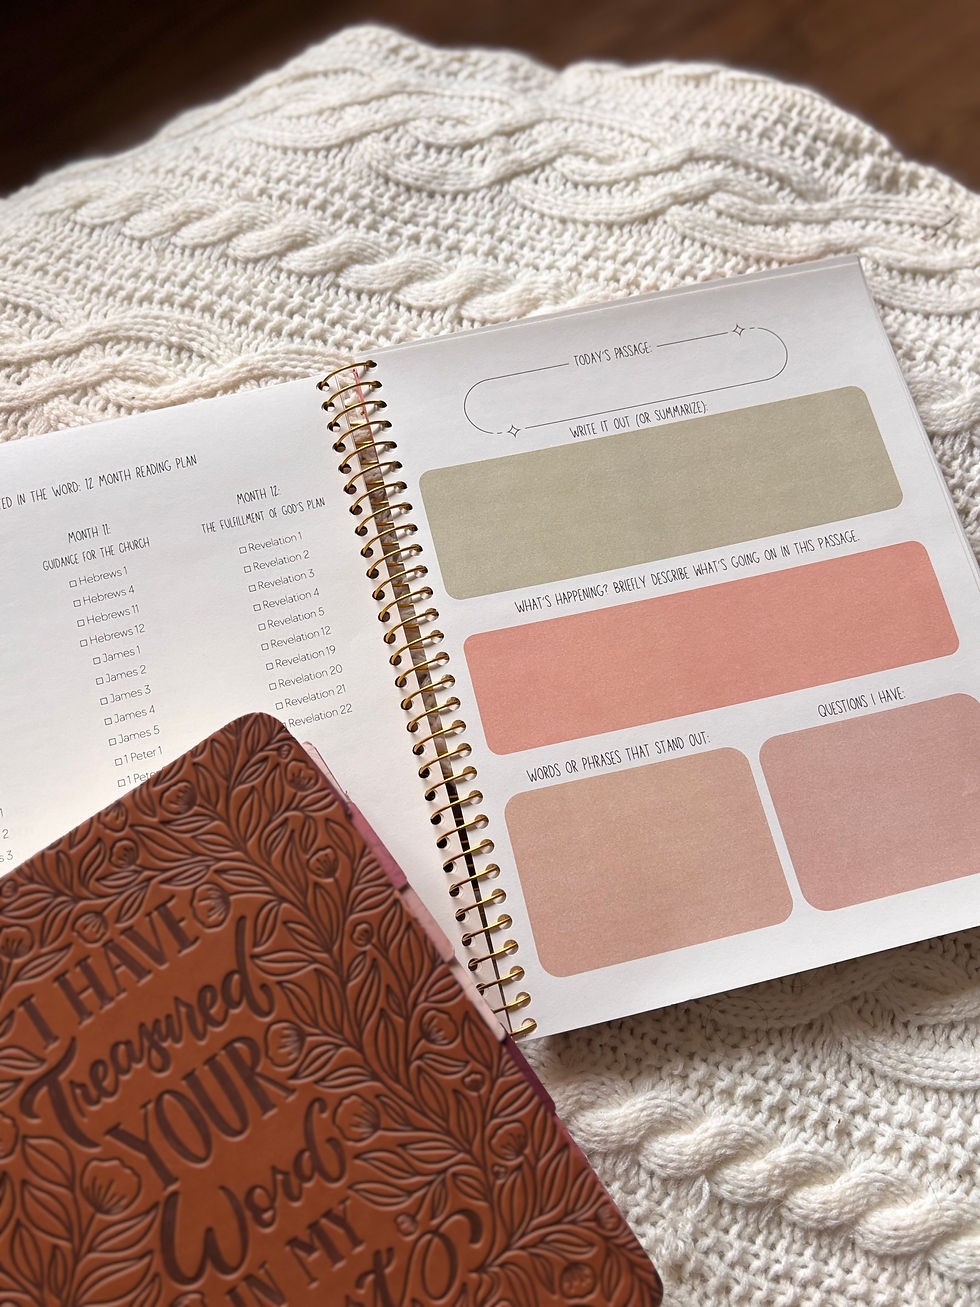 ED IN THE WORD: 12 MONTH READING PLAN
MONTH 11:
GUIDANCE FOR THE CHURCH
Hebrews 1
Hebrews 4
Hebrews 11
Hebrews 12
James 1
James 2
James 3
James 4
James 5
1 Peter 1
1 Peter
MONTH 12:
THE FULFILLMENT OF GOD'S PLAN
Revelation 1
Revelation 2
Revelation 3
Revelation 4
Revelation 5
Revelation 12
Revelation 19
Revelation 20
Revelation 21
Revelation 22
1
2
s 3
TODAY'S PASSAGE:
WRITE IT OUT (OR SUMMARIZE):
WHAT'S HAPPENING? BRIEFLY DESCRIBE WHAT'S GOING ON IN THIS PASSAGE.
WORDS OR PHRASES THAT STAND OUT:
QUESTIONS I HAVE:
I HAVE
Treasured
YOUR
Word
IN MY